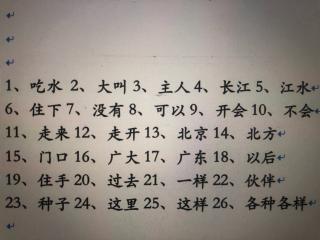 1、吃水 2、大叫 3、主人 4、长江 5、江水
6、住下 7、没有 8、可以 9、开会 10、不会
11、走来 12、走开 13、北京 14、北方
15、门口 16、广大 17、广东 18、以后
19、住手 20、过去 21、一样 22、伙伴
23、种子 24、这里 25、这样 26、各种各样